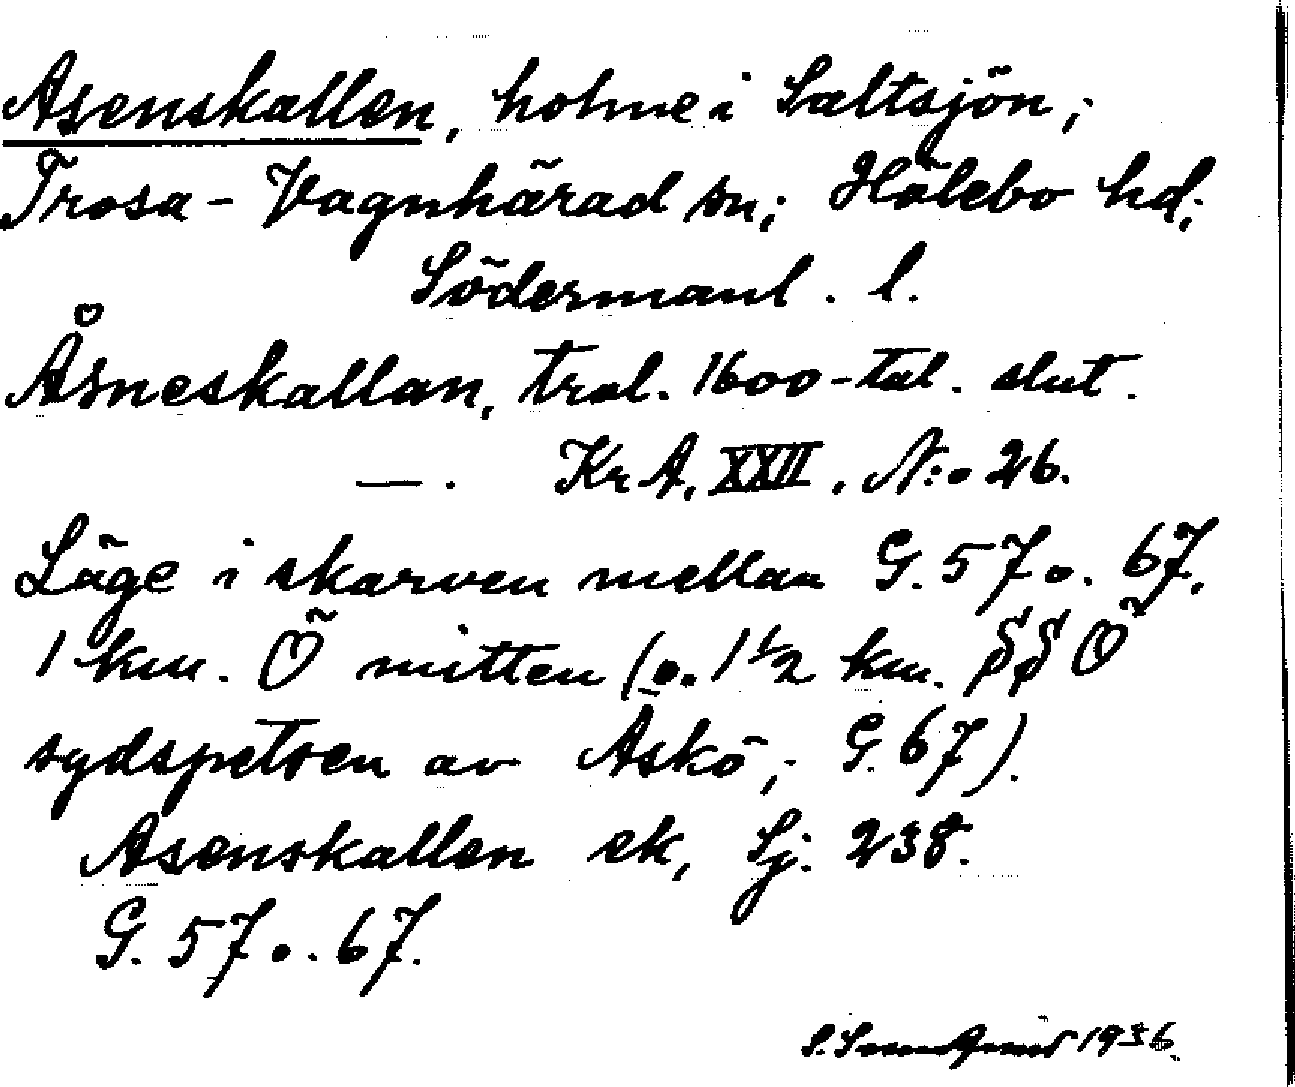 Asenskallen, holme i Saltsjön;
Trosa-Vagnhärad sn; Hölebo hd;
Södermanl. l.
Åsneskallan, trol. 1600-tal. slut.
—. KrA, XXII, N:o 26.
Läge i skarven mellan G. 57 o. 67,
1 km. Ö mitten (o. 1½ km. SSÖ
sydspetsen av Askö; G. 67).
Asenskallen ek, Sj. 238.
G. 57 o. 67.
1936